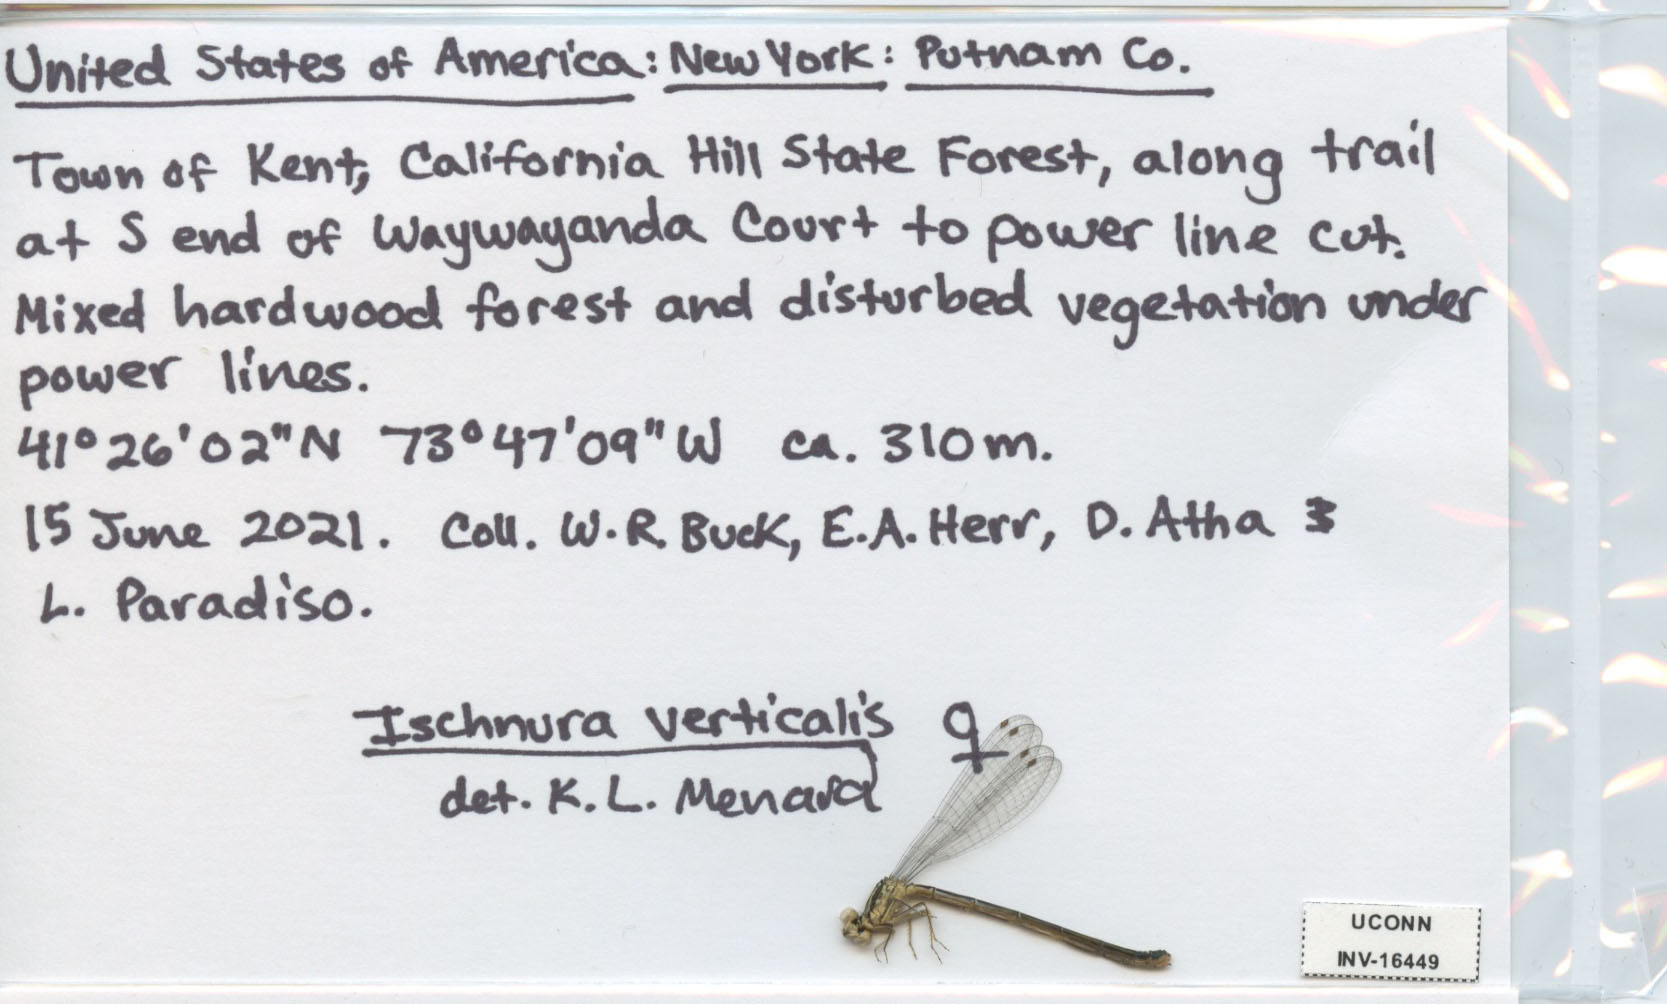 United States of America: New York: Putnam Co.
Town of Kent, California Hill State Forest, along trail
at S end of Waywayanda Court to power line cut.
Mixed hardwood forest and disturbed vegetation under
power lines.
41°26'02"N 73°47'09"W ca. 310m.
15 June 2021. Coll. W.R. Buck, E.A. Herr, D. Atha &
L. Paradiso.
Ischnura verticalis ♀
det. K.L. Menard
UCONN
INV-16449